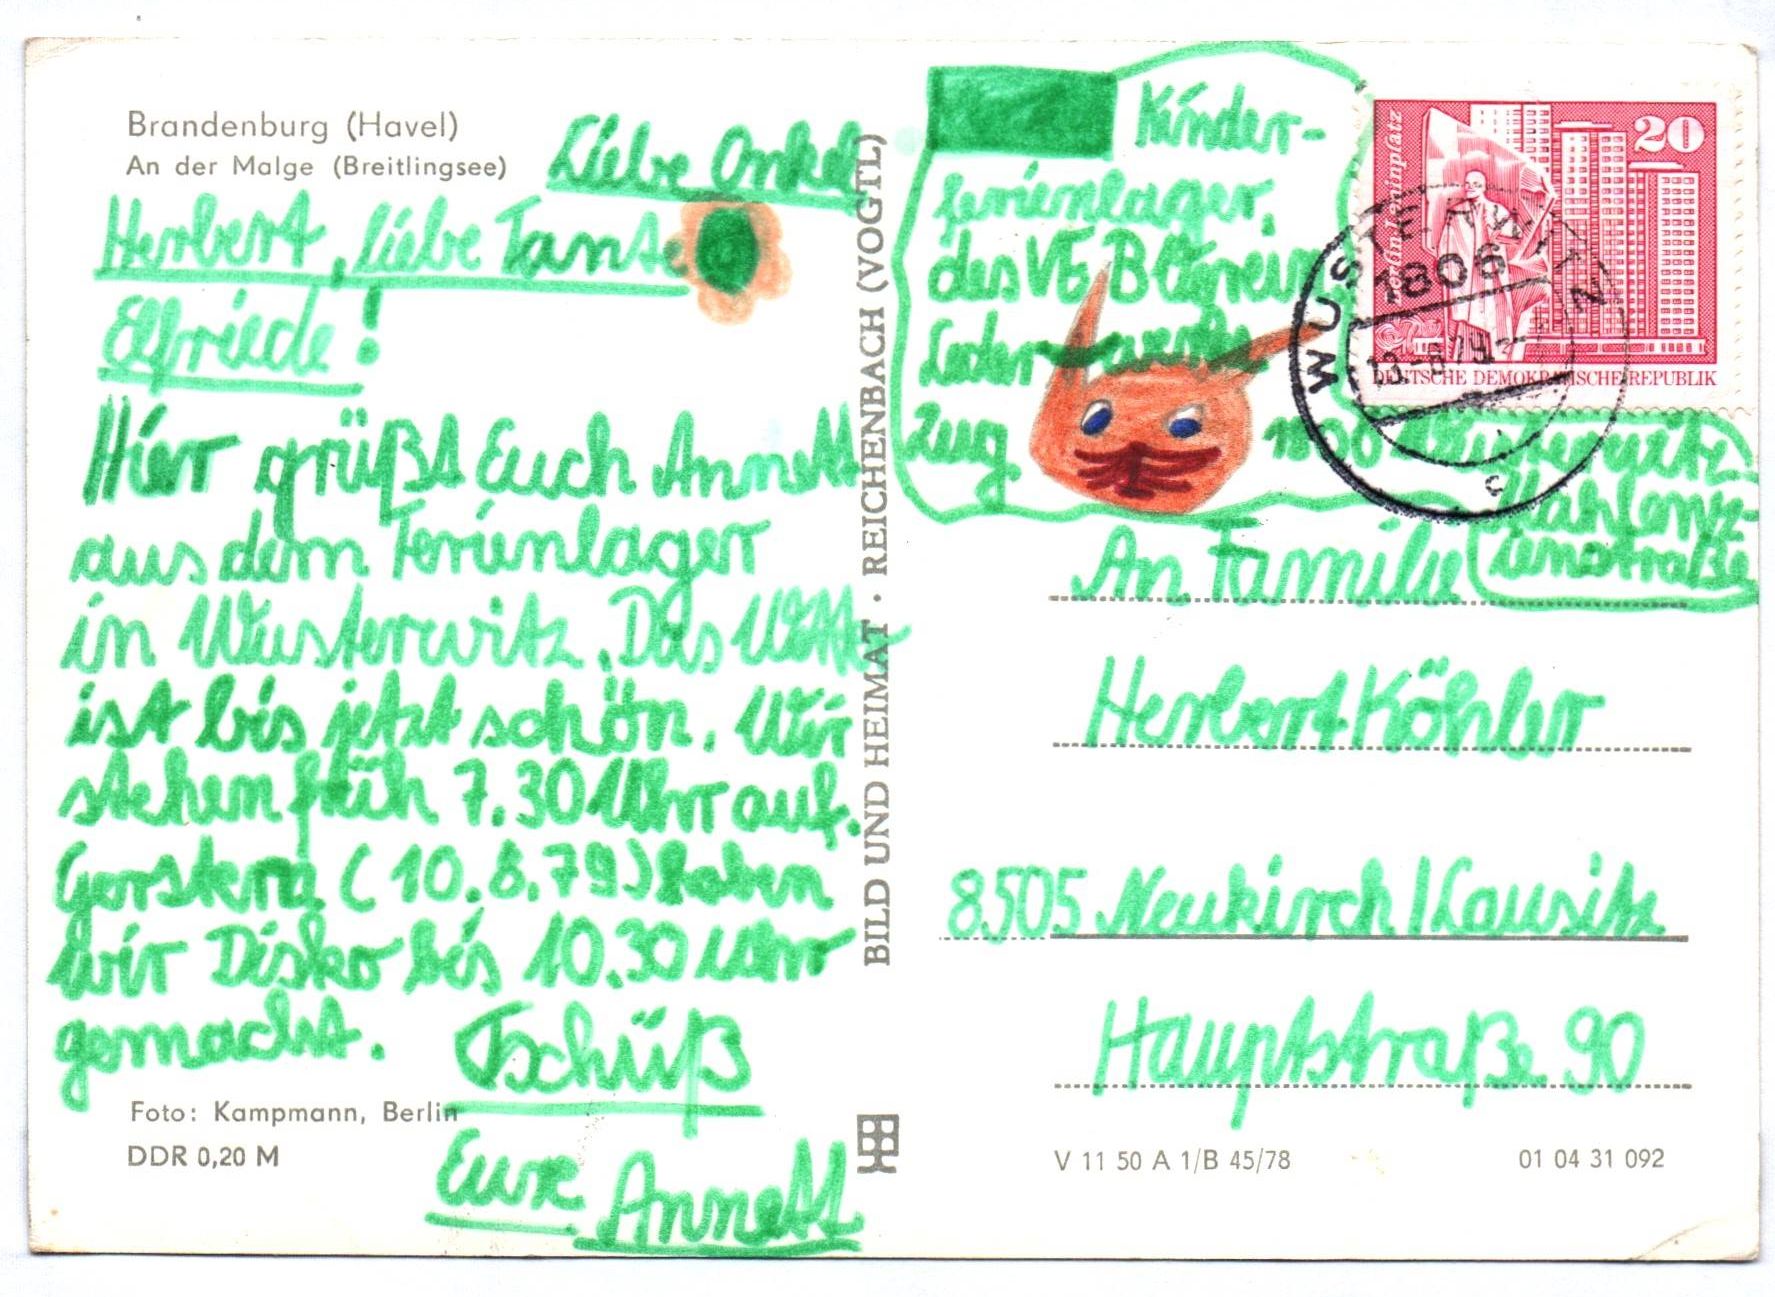 Brandenburg (Havel)
An der Malge (Breitlingsee)
Liebe Onkel
Herbert, liebe Tante
Elfriede!
Hier grüßt Euch Annett
aus dem Ferienlager
in Wusterwitz. Das Wetter
ist bis jetzt schön. Wir
stehen früh 7.30 Uhr auf.
Gerstern (10.8.79) haben
wir Disko bis 10.30 Uhr
gemacht. Tschüß
Eure Annett
Foto: Kampmann, Berlin
DDR 0,20 M
BILD UND HEIMAT · REICHENBACH (VOGTL)
Kinder-
ferienlager,
des VEB
Leder
Zug
1806 Wusterwitz
straße
20
Berlin Leninplatz
DEUTSCHE DEMOKRATISCHE REPUBLIK
WUSTERWITZ
1806
An Familie
Herbert Köhler
8505 Neukirch/Lausitz
Hauptstraße 90
V 11 50 A 1/B 45/78
01 04 31 092